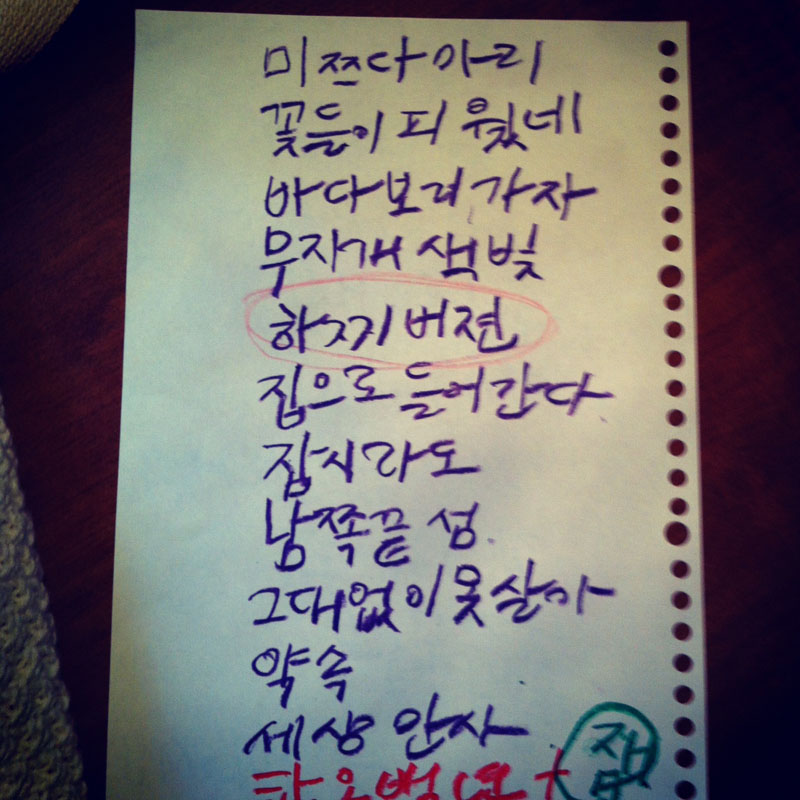 미쯔다마리
꽃들이 피웠네
바다보러가자
무지개색빛
하찌버젼
집으로 들어간다
잠시라도
남쪽끝 섬
그대없이 못살아
약속
세상 만사